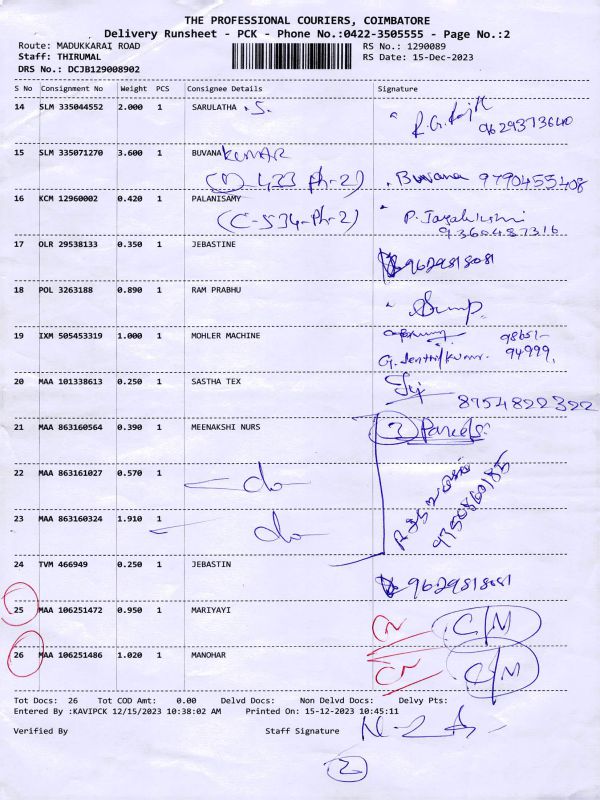 THE PROFESSIONAL COURIERS, COIMBATORE
Delivery Runsheet - PCK - Phone No.:0422-3505555 - Page No.:2
Route: MADUKKARAI ROAD RS No.: 1290089
Staff: THIRUMAL RS Date: 15-Dec-2023
DRS No.: DCJB129008902
S No Consignment No Weight PCS Consignee Details Signature
14 SLM 335044552 2.000 1 SARULATHA .S.
9629373640
15 SLM 335071270 3.600 1 BUVANA KUMAR
(D-433 Ph-2) Buvana 9790455408
16 KCM 12960002 0.420 1 PALANISAMY
(C-534-Ph-2) 9360487316
17 OLR 29538133 0.350 1 JEBASTINE
9629818081
18 POL 3263188 0.890 1 RAM PRABHU
19 IXM 505453319 1.000 1 MOHLER MACHINE 98651-
94999,
20 MAA 101338613 0.250 1 SASTHA TEX
8754822322
21 MAA 863160564 0.390 1 MEENAKSHI NURS Parcels.
22 MAA 863161027 0.570 1 do
23 MAA 863160324 1.910 1 do 9750860185
24 TVM 466949 0.250 1 JEBASTIN
9629818081
25 MAA 106251472 0.950 1 MARIYAYI C/M
26 MAA 106251486 1.020 1 MANOHAR C/M
Tot Docs: 26 Tot COD Amt: 0.00 Delvd Docs: Non Delvd Docs: Delvy Pts:
Entered By :KAVIPCK 12/15/2023 10:38:02 AM Printed On: 15-12-2023 10:45:11
Verified By Staff Signature
2